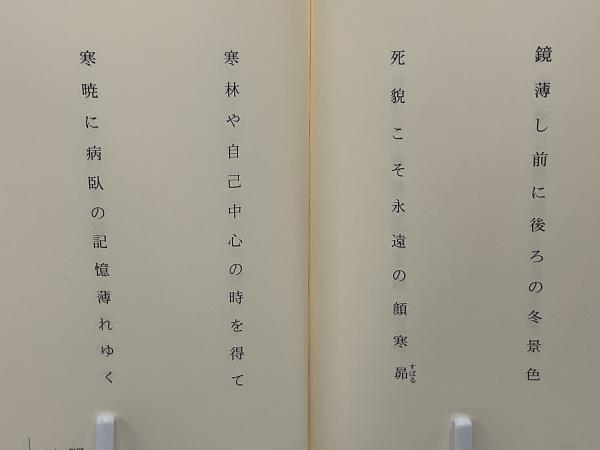 鏡薄し前に後ろの冬景色
死貌こそ永遠の顔寒昴
すばる
寒林や自己中心の時を得て
寒暁に病臥の記憶薄れゆく